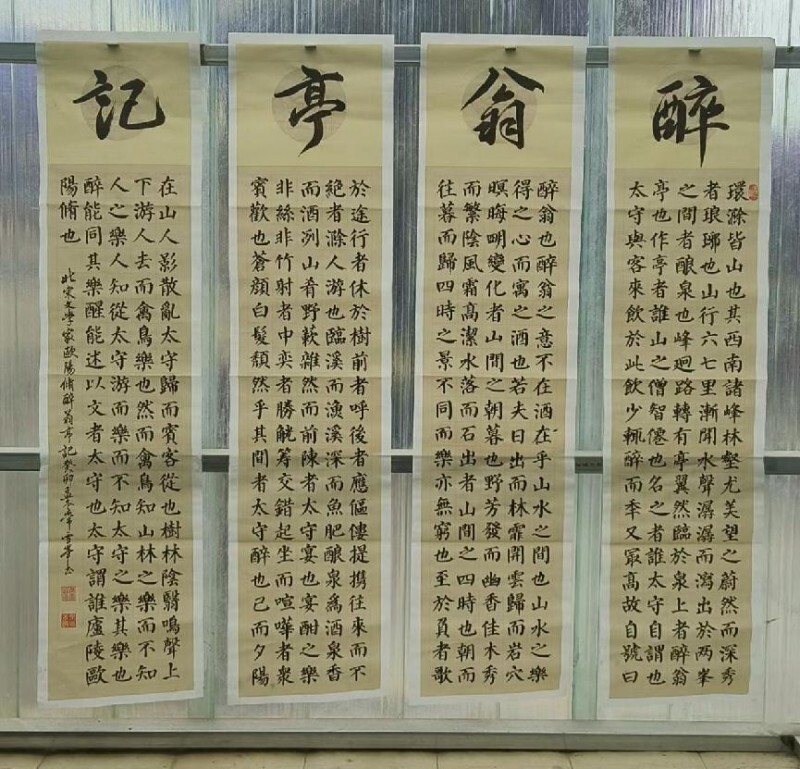 醉
環滁皆山也其西南諸峰林壑尤美望之蔚然而深秀
者琅琊也山行六七里漸聞水聲潺潺而瀉出於两峯
之間者酿泉也峰迴路轉有亭翼然臨於泉上者醉翁
亭也作亭者誰山之僧智僊也名之者誰太守自謂也
太守與客來飲於此飲少輒醉而秊又冣高故自號曰
翁
醉翁也醉翁之意不在酒在乎山水之間也山水之樂
得之心而寓之酒也若夫日出而林霏開雲歸而岩穴
暝晦明變化者山間之朝暮也野芳發而幽香佳木秀
而繁陰風霜高潔水落而石出者山間之四時也朝而
往暮而歸四時之景不同而樂亦無窮也至於負者歌
亭
於途行者休於樹前者呼後者應傴僂提携往來而不
絶者滁人游也臨溪而漁溪深而魚肥酿泉爲酒泉香
而酒洌山肴野蔌雜然而前陳者太守宴也宴酣之樂
非絲非竹射者中奕者勝觥籌交錯起坐而喧嘩者衆
賓歡也蒼顔白髮頹然乎其間者太守醉也已而夕陽
記
在山人影散亂太守歸而賓客從也樹林陰翳鳴聲上
下游人去而禽鳥樂也然而禽鳥知山林之樂而不知
人之樂人知從太守游而樂而不知太守之樂其樂也
醉能同其樂醒能述以文者太守也太守謂誰廬陵歐
陽脩也
北宋文學家歐陽脩醉翁亭記癸卯孟冬